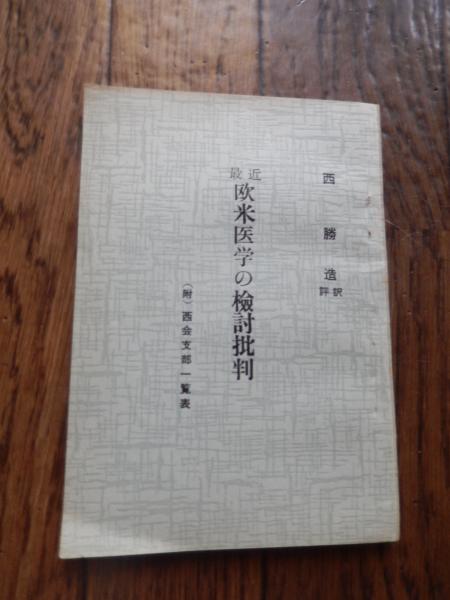 西勝造
評訳
最近
欧米医学の檢討批判
(附)西会支部一覧表